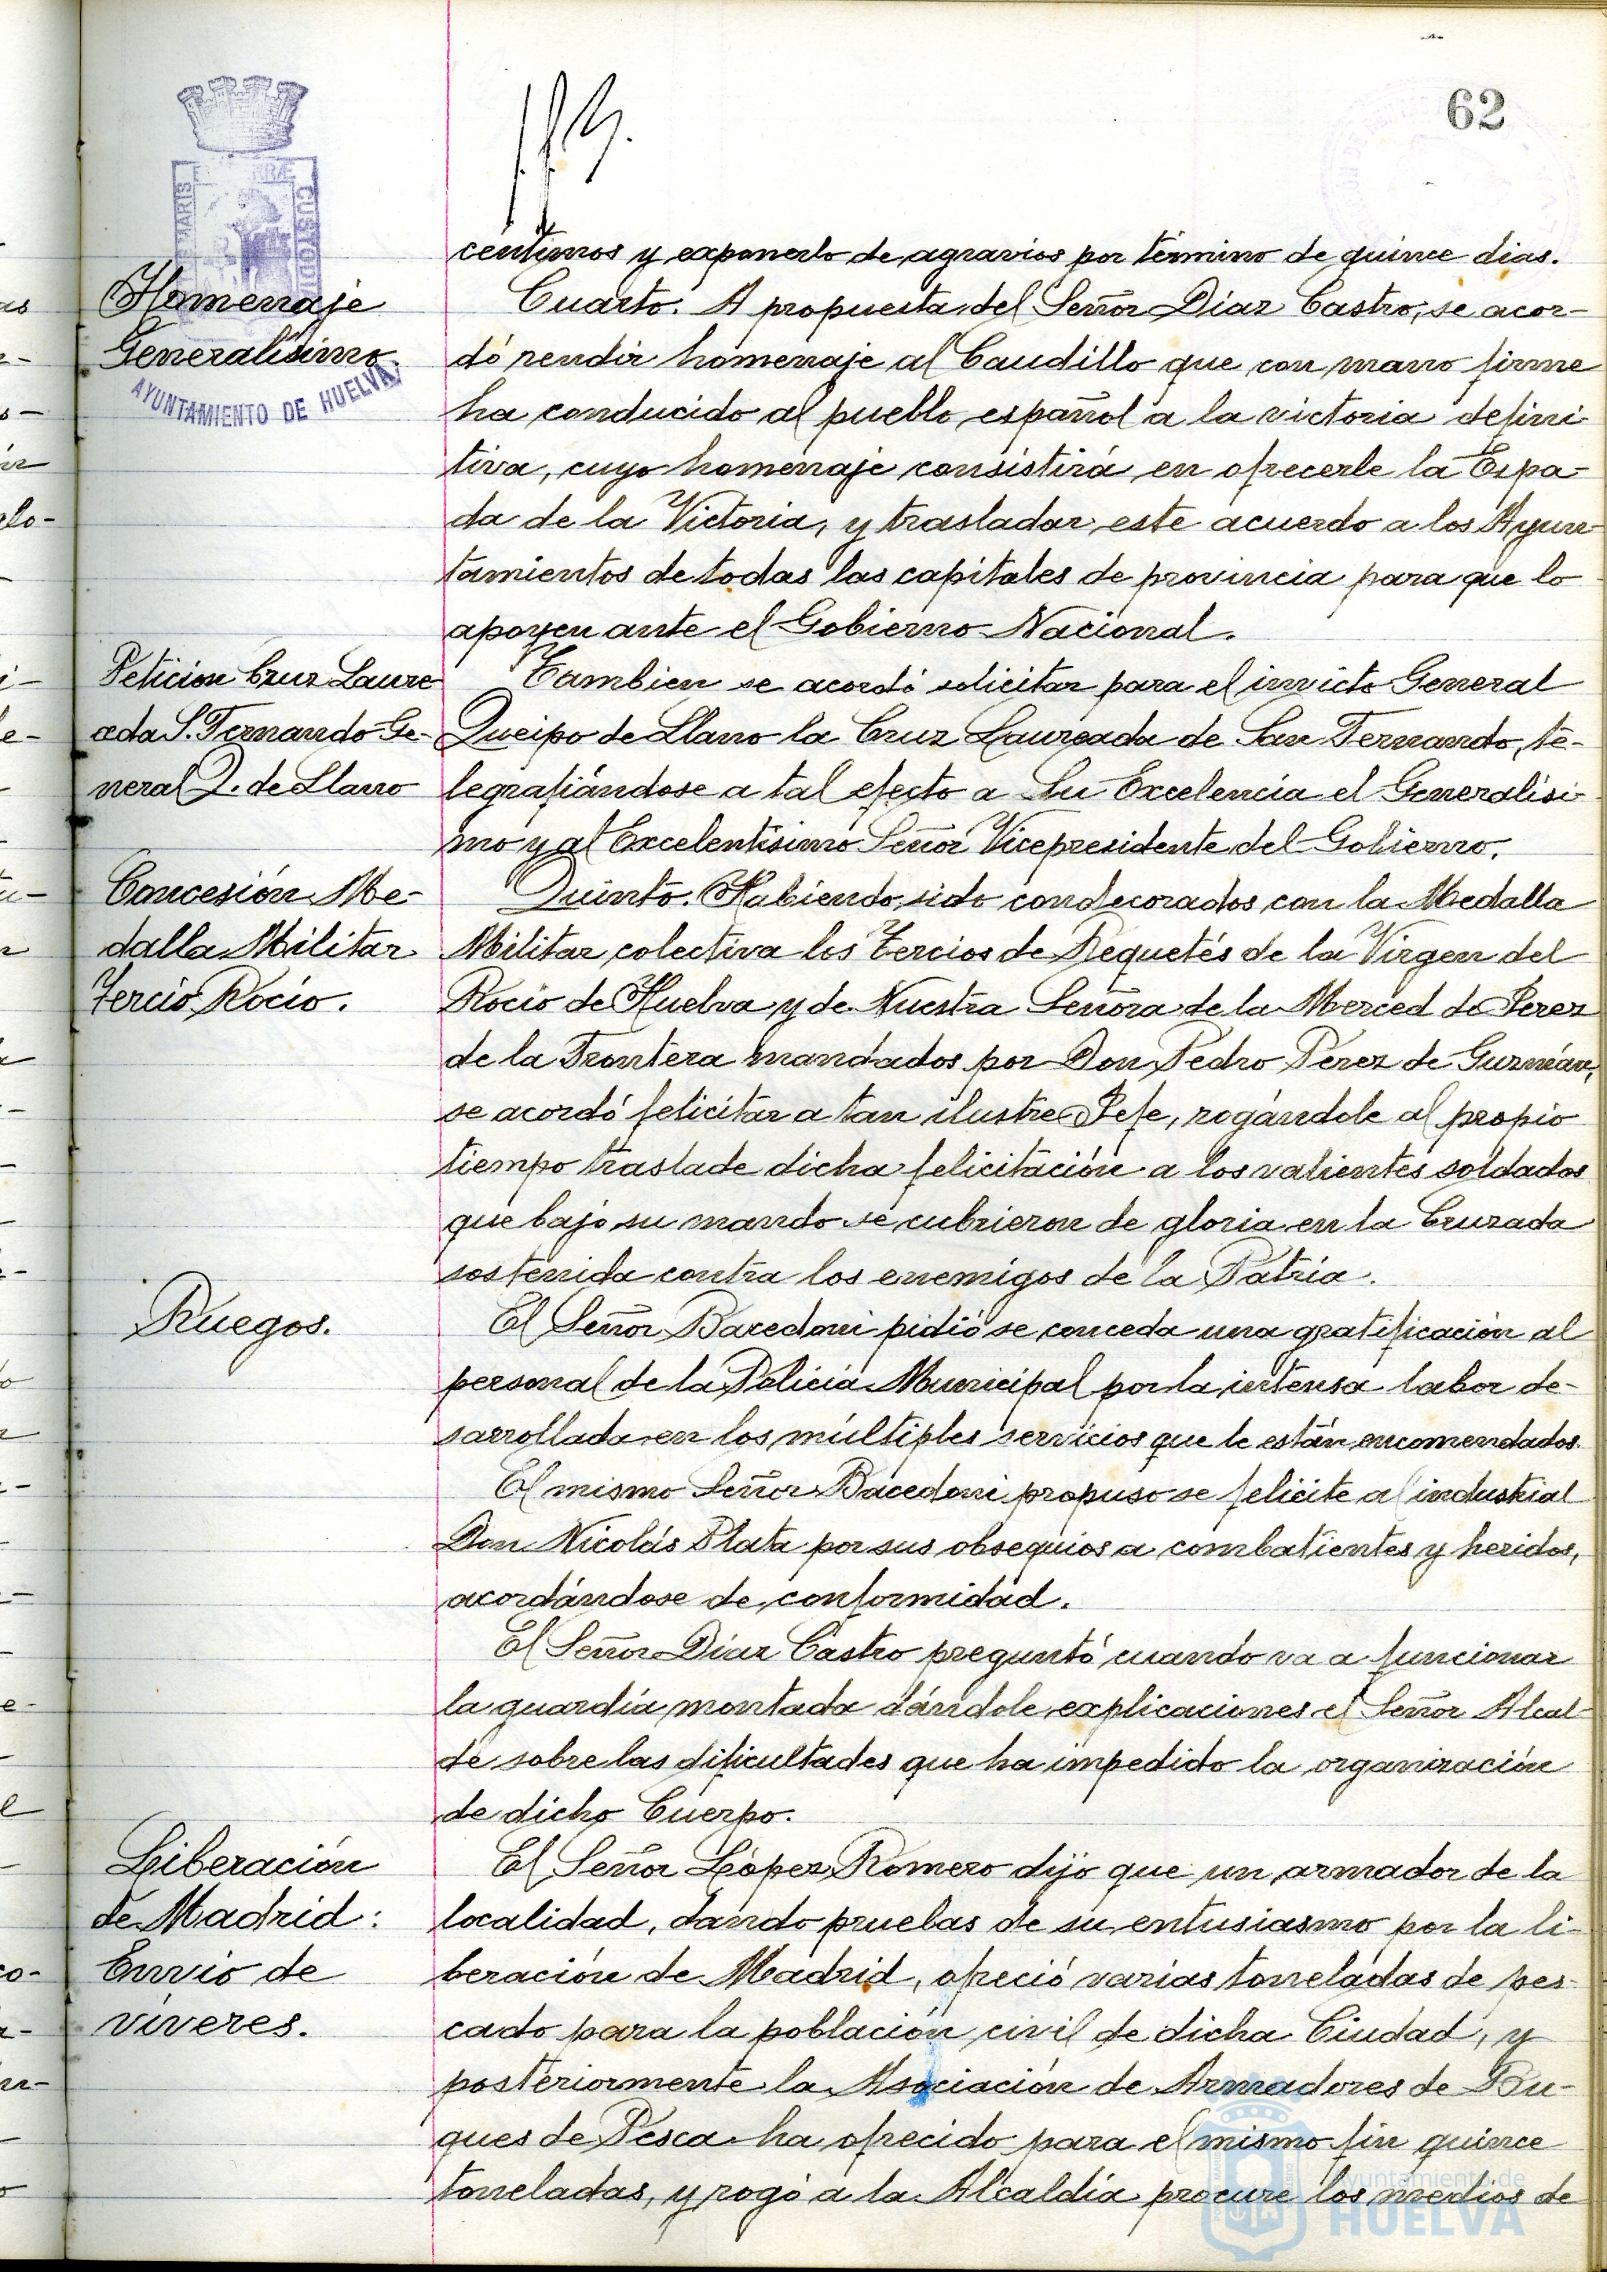 62
céntimos y exponerlo de agravios por término de quince dias.
Homenaje
Generalísimo.
AYUNTAMIENTO DE HUELVA
Cuarto. A propuesta del Señor Díaz Castro, se acor-
dó rendir homenaje al Caudillo que con mano firme
ha conducido al pueblo español a la victoria defini-
tiva, cuyo homenaje consistirá en ofrecerle la Espa-
da de la Victoria, y trasladar este acuerdo a los Ayun-
tamientos de todas las capitales de provincia para que lo
apoyen ante el Gobierno Nacional.
Peticion Cruz Laure
ada S. Fernando Ge-
neral Q. de Llano
Tambien se acordó solicitar para el invicto General
Queipo de Llano la Cruz Laureada de San Fernando, te-
legrafiándose a tal efecto a Su Excelencia el Generalísi-
mo y al Excelentísimo Señor Vicepresidente del Gobierno.
Concesión Me-
dalla Militar
Tercio Rocío.
Quinto. Habiendo sido condecorados con la Medalla
Militar colectiva los Tercios de Requetés de la Virgen del
Rocío de Huelva y de Nuestra Señora de la Merced de Jerez
de la Frontera mandados por Don Pedro Pérez de Guzmán,
se acordó felicitar a tan ilustre Jefe, rogándole al propio
tiempo traslade dicha felicitación a los valientes soldados
que bajo su mando se cubrieron de gloria en la Cruzada
sostenida contra los enemigos de la Patria.
Ruegos.
El Señor Bacedoni pidió se conceda una gratificación al
personal de la Policía Municipal por la intensa labor de-
sarrollada en los múltiples servicios que le están encomendados.
El mismo Señor Bacedoni propuso se felicite al industrial
Don Nicolás Plata por sus obsequios a combatientes y heridos,
acordándose de conformidad.
El Señor Díaz Castro preguntó cuando va a funcionar
la guardia montada dándole explicaciones el Señor Alcal-
de sobre las dificultades que ha impedido la organización
de dicho Cuerpo.
Liberación
de Madrid:
Envío de
víveres.
El Señor López Romero dijo que un armador de la
localidad, dando pruebas de su entusiasmo por la li-
beración de Madrid, ofreció varias toneladas de pes-
cado para la población civil de dicha Ciudad, y
posteriormente la Asociación de Armadores de Bu-
ques de Pesca ha ofrecido para el mismo fin quince
toneladas, y rogó a la Alcaldía procure los medios de
Ayuntamiento de
HUELVA